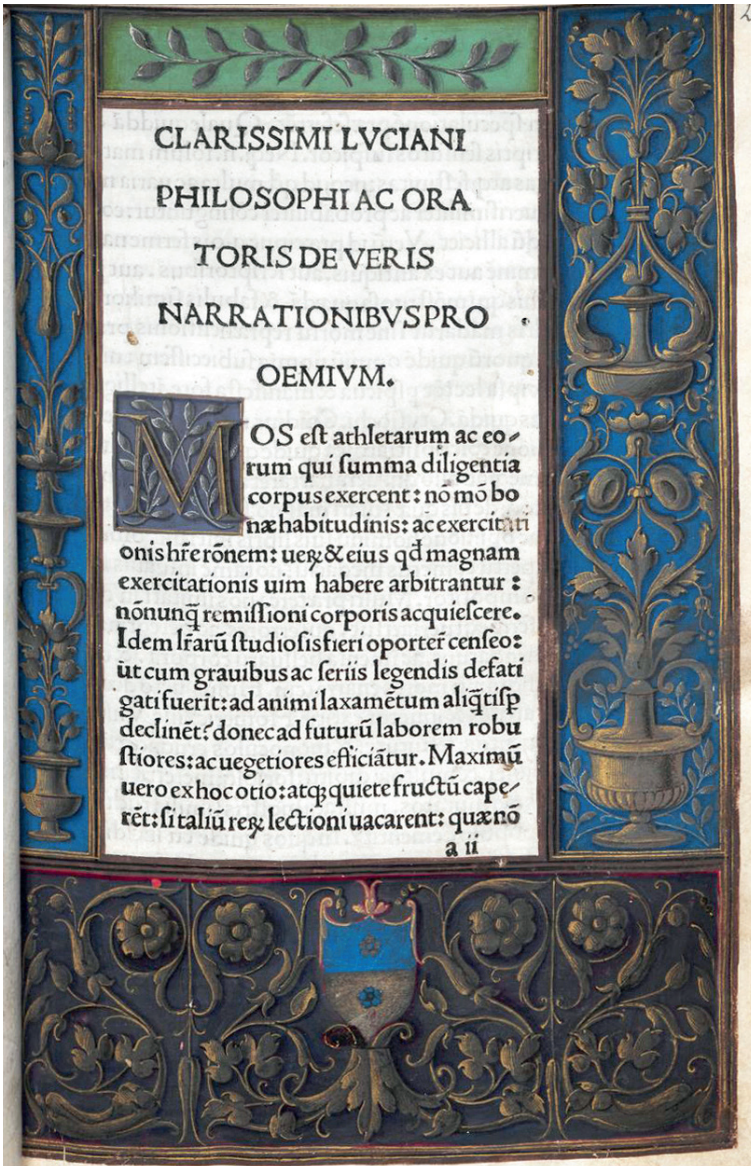 CLARISSIMI LVCIANI
PHILOSOPHI AC ORA
TORIS DE VERIS
NARRATIONIBVS PRO
OEMIVM.
MOS eſt athletarum ac eo-
rum qui ſumma diligentia
corpus exercent: nō mō bo
næ habitudinis: ac exercitati
onis hr̄e rōnem: ueꝝ & eius qđ magnam
exercitationis uim habere arbitrantur:
nōnunq̄ remiſſioni corporis acquieſcere.
Idem lr̄arū ſtudioſis fieri oporter̄ cenſeo:
ut cum grauibus ac ſeriis legendis defati
gati fuerit: ad animi laxamētum aliq̄tiſꝑ
declinēt? donec ad futurū laborem robu
ſtiores: ac uegetiores efficiātur. Maximū
uero ex hoc otio: atqꝫ quiete fructū cape-
rēt: ſi taliū reꝝ lectioni uacarent: quæ nō
a ii